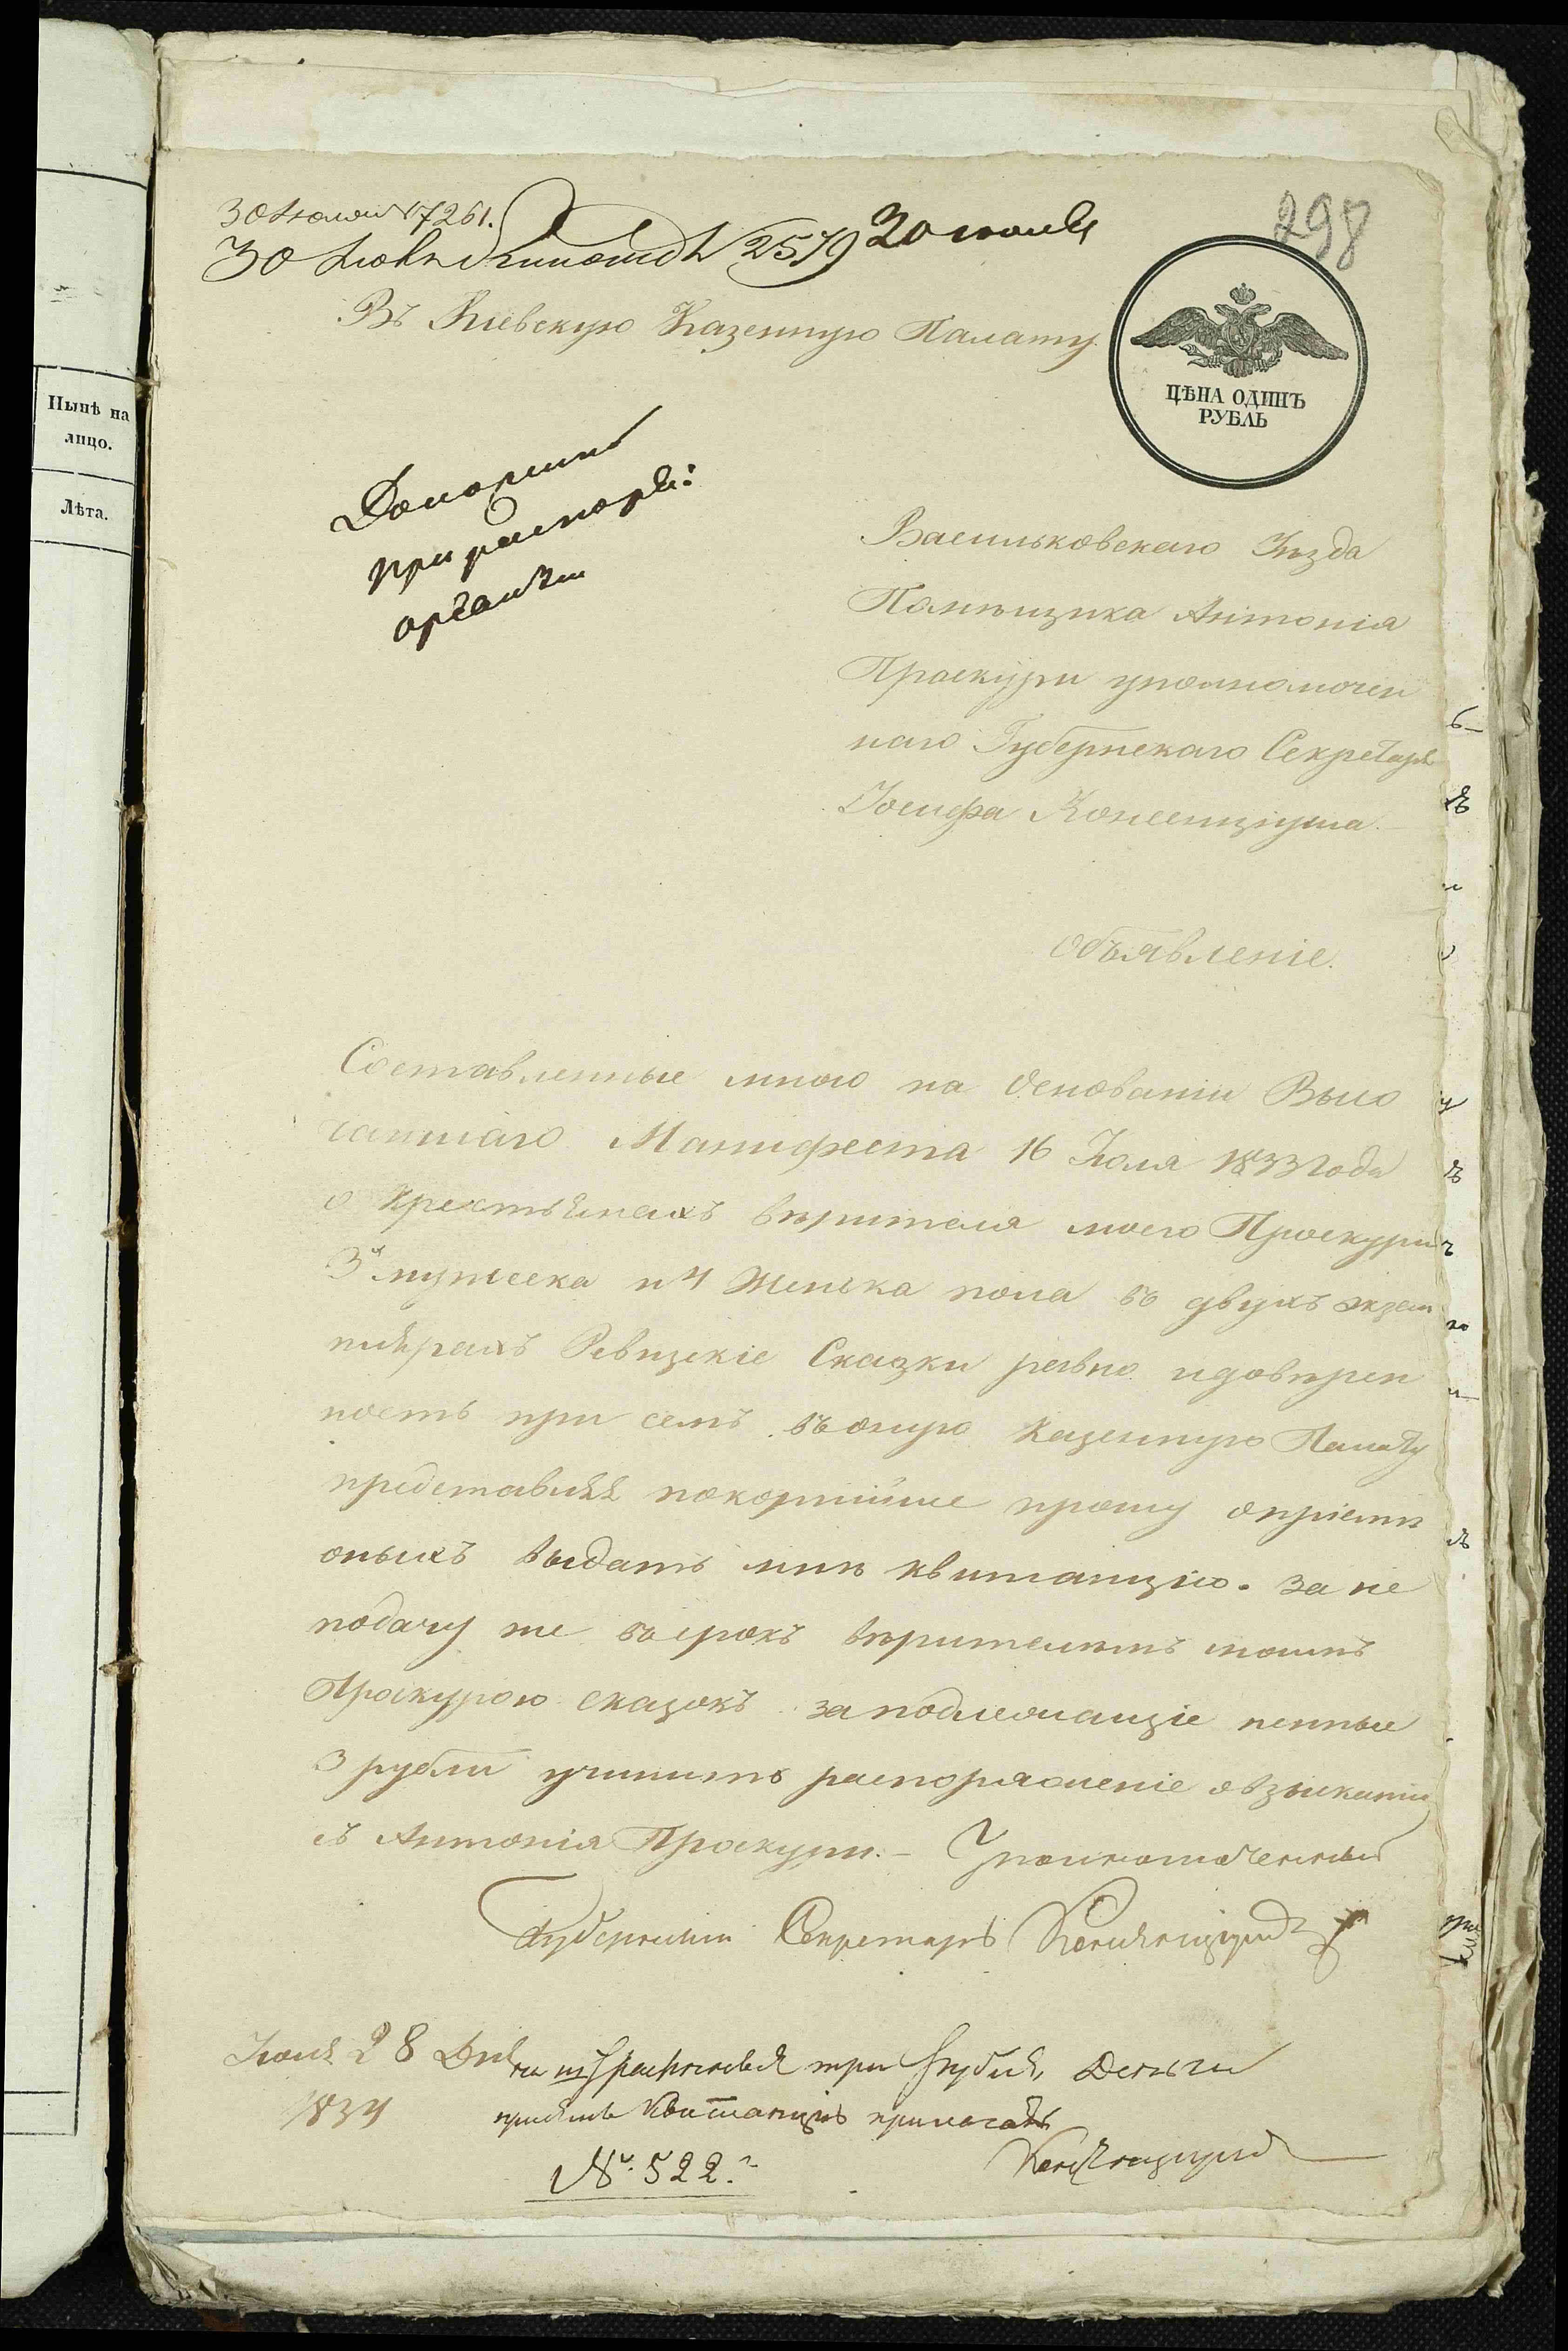 298
30 Июля № 7261.
30 № 2579 30 июля
Въ Кіевскую Казенную Палату
ЦѢНА ОДИНЪ
РУБЛЬ
Нынѣ на
лицо.
Лѣта.
Доложить
при
Васильковскаго Уѣзда
Помѣщика Антонія
Проскуры уполномочен
наго Губернскаго Секретаря
Іосифа
Объявленіе.
Составленные мною на Основаніи Высо
чайшаго Манифеста 16 Іюля 1833 года
о Крестьянахъ вѣрителя моего Проскуры
3 мужеска и 4 Женска пола въ двухъ экзем
плярахъ Ревизскіе Сказки равно и довѣрен
ность при семъ въ оную Казенную Палату
представляя покорнѣйше прошу о пріемѣ
оныхъ выдать мнѣ квитанцію. За не
подачу же въ срокъ вѣрителемъ моимъ
Проскурою сказокъ заподлежащіе пенные
3 рубли учинить распоряженіе о взысканіи
съ Антонія Проскуры. – Уполномоченный
Губернскій Секретарь
Іюля 28 Дня
1834
три рубля, Деньги
квитанцію
№ 522.